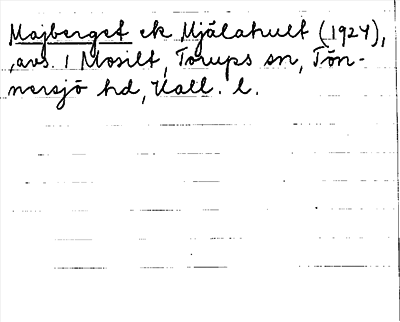 Majberget ek Mjälahult (1924),
avs. 1 Mosilt, Torups sn, Tön-
nersjö hd, Hall. l.